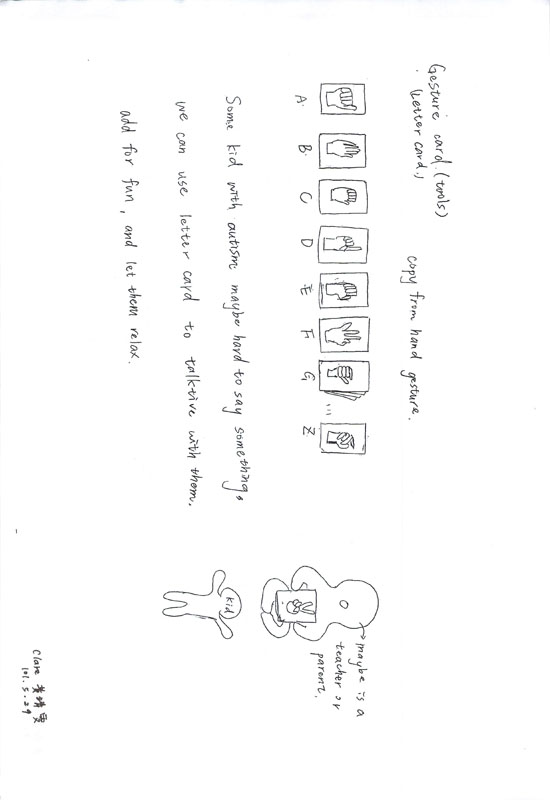 Gesture card.(tools)
(letter card.)
copy from hand gesture.
A. B. C D E F G ... Z
Some kid with autism maybe hard to say something,
we can use letter card to talktive with them.
add for fun, and let them relax.
maybe is a
teacher or
parent.
kid
Clare
101.5.29